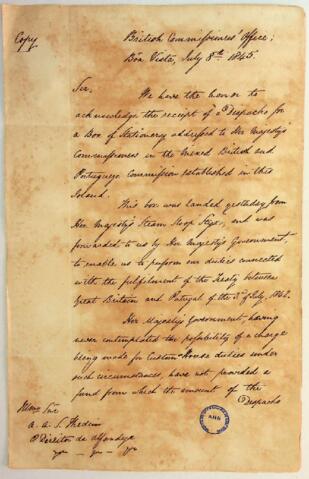 Copy
British Commissioners' Office;
Bôa Vista, July 8th 1845.
Sir,
We have the honor to
acknowledge the receipt of a Despacho for
a Box of Stationery addressed to Her Majesty's
Commissioners in the Mixed British and
Portuguese Commission established in this
Island.
This box was landed yesterday from
Her Majesty's Steam Sloop Styx, and was
forwarded to us by Her Majesty's Government,
to enable us to perform our duties connected
with the fulfilment of the Treaty between
Great Britain and Portugal of the 3d of July, 1842.
Her Majesty's Government, having
never contemplated the possibility of a charge
being made for Custom-House duties under
such circumstances, have not provided a
fund from which the amount of the
Despacho
Snr
A. A. S.
Director da Alfandega
AHN